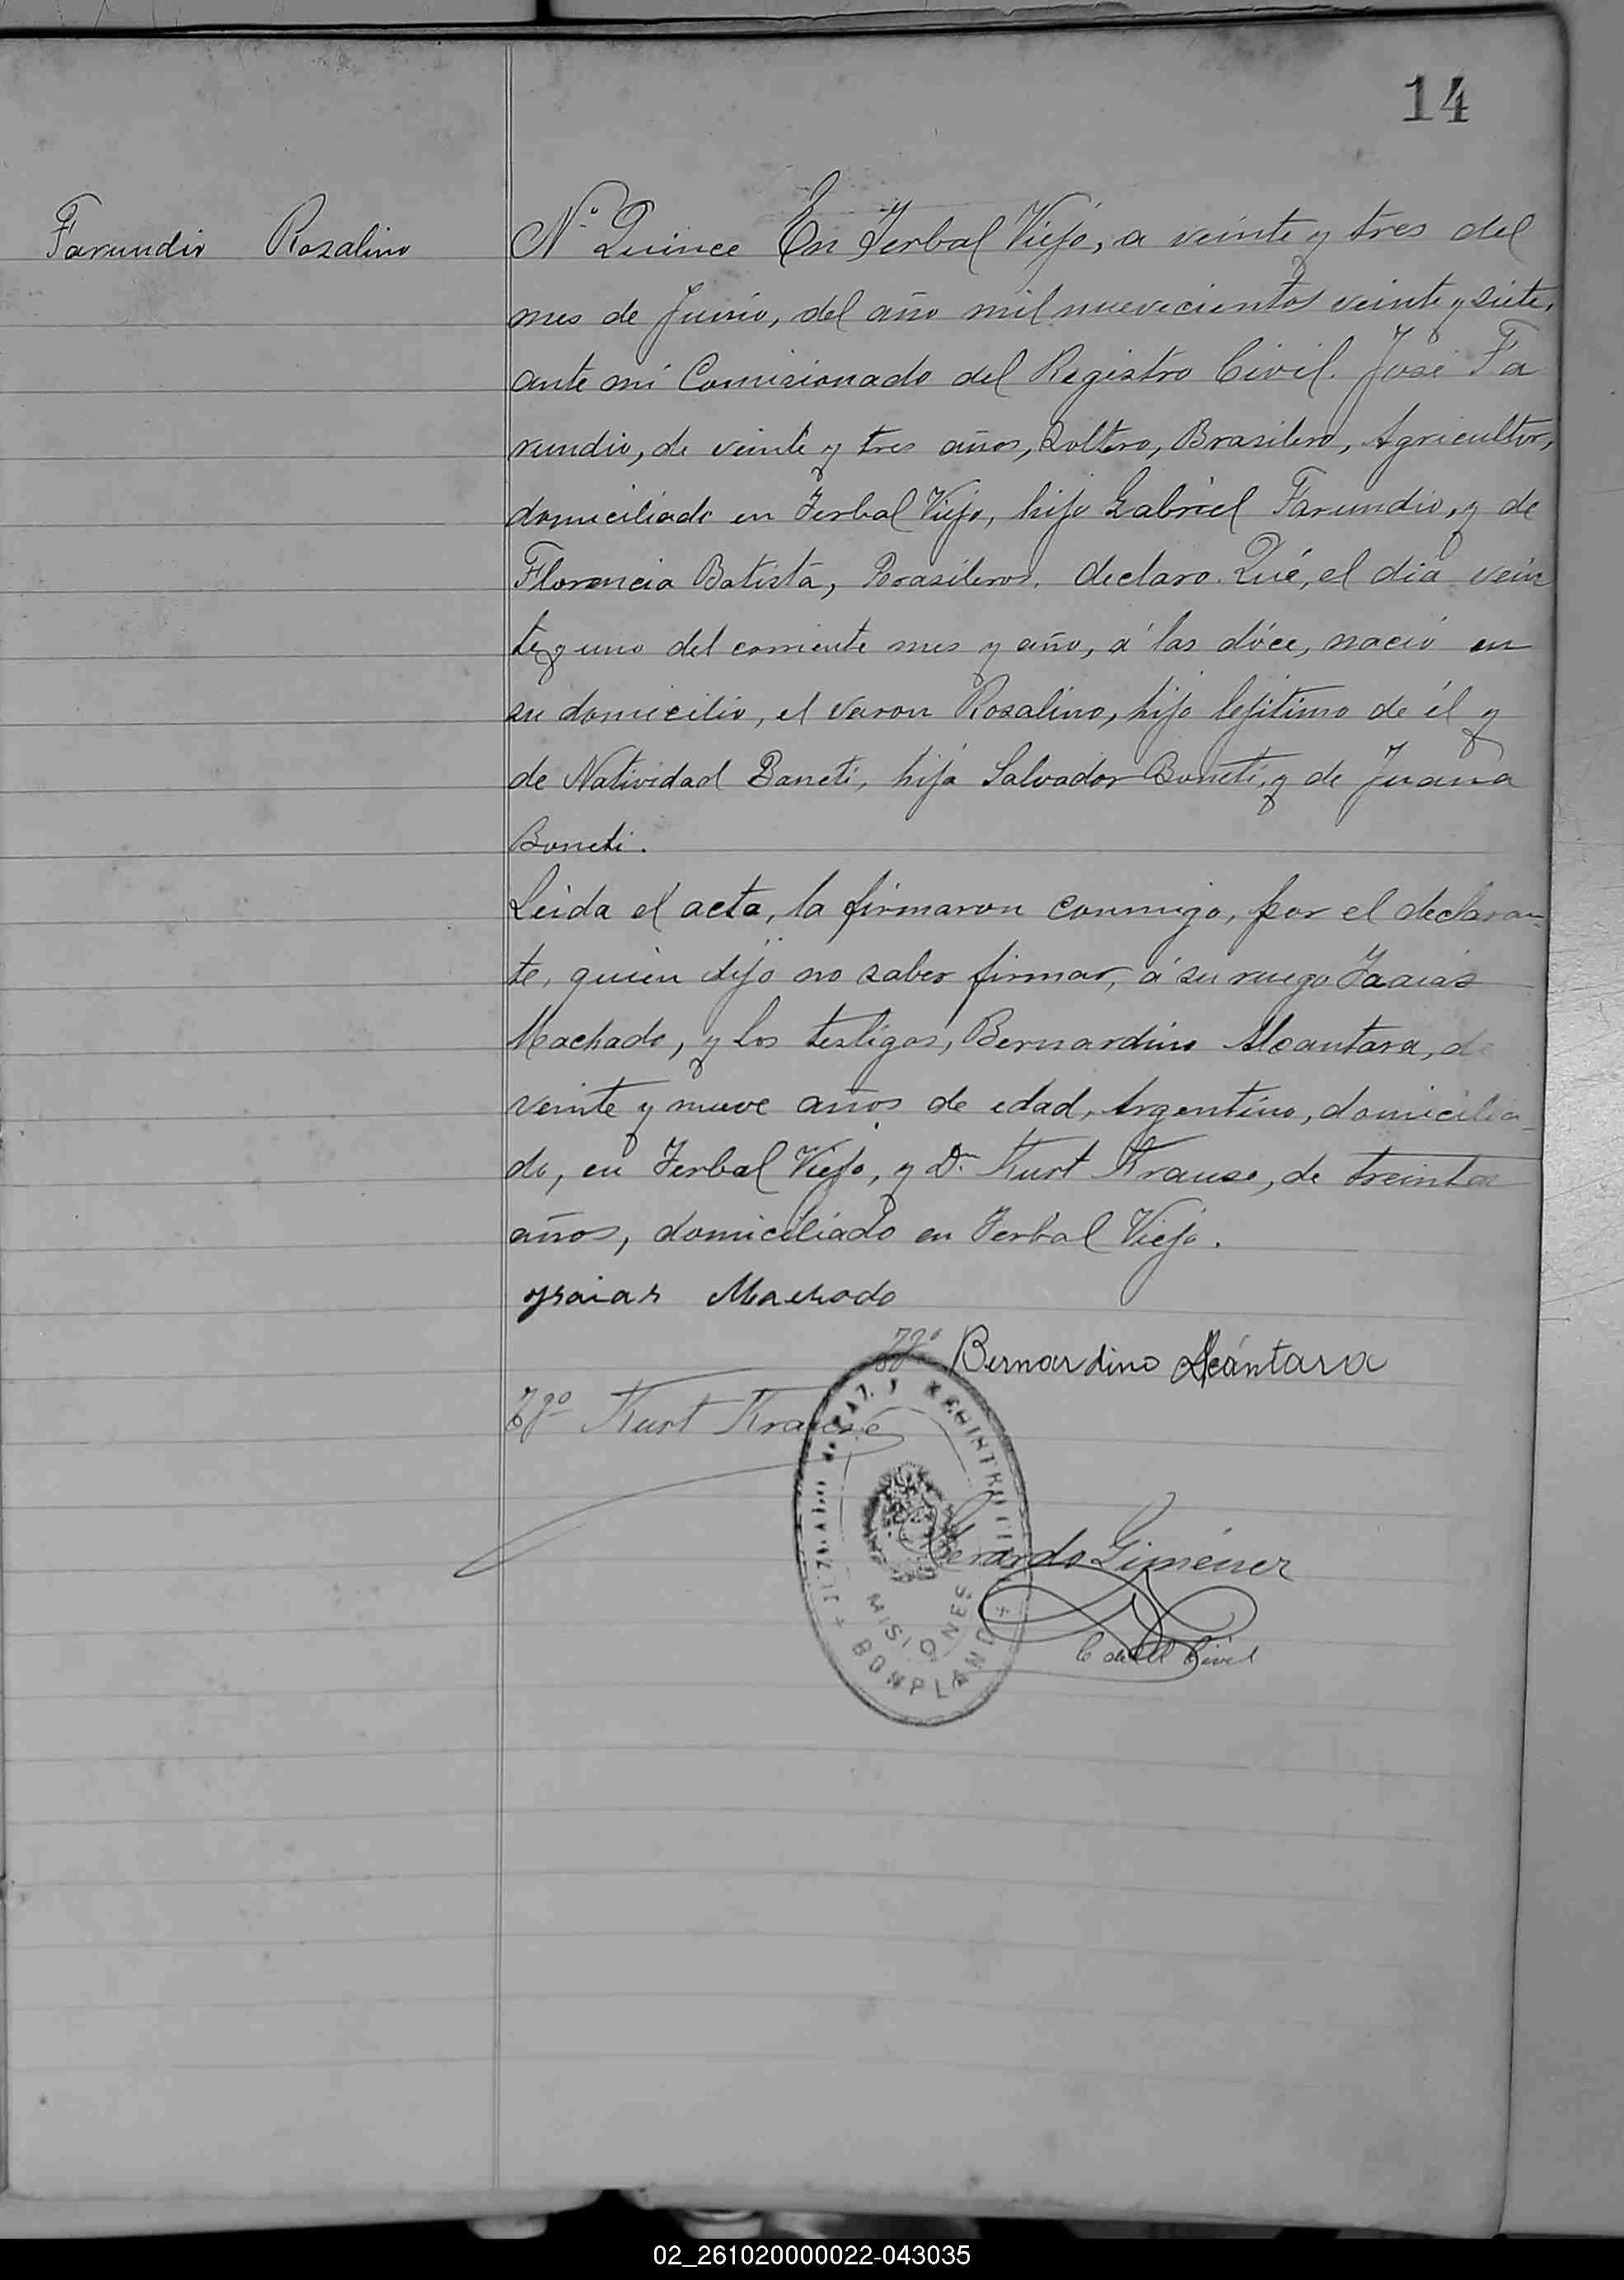 14
Farundio Rosalino
Nº Quince En Yerbal Viejo, a veinte y tres del
mes de Junio, del año mil nuevecientos veinte y siete,
ante mi Comisionado del Registro Civil. José Fa
rundio, de veinte y tres años, Soltero, Brasilero, Agricultor,
domiciliado en Yerbal Viejo, hijo Gabriel Farundio, y de
Florencia Batista, Brasileros. declaro. Qué, el dia vein
te y uno del corriente mes y año, a' las dóce, nació en
su domicilio, el varon Rosalino, hijo lejitimo de él y
de Natividad Baneti, hija Salvador Boneti, y de Juana
Boneti.
Leida el acta, la firmaron conmigo, por el declaran-
te, quien dijo no saber firmar, á su ruego Isaias
Machado, y los testigos, Bernardino Alcantara, de
veinte y nueve años de edad, Argentino, domicilia-
do, en Yerbal Viejo, y D. Kurt Krause, de treinta
años, domiciliado en Yerbal Viejo.
ysaias Machado
Tgo Bernardino Alcántara
Tgo Kurt Krause
JUZGADO DE PAZ Y REGISTRO CIVIL
Gerardo Giménez
MISIONES
C del R Civil
+ BONPLAND +
02_261020000022-043035